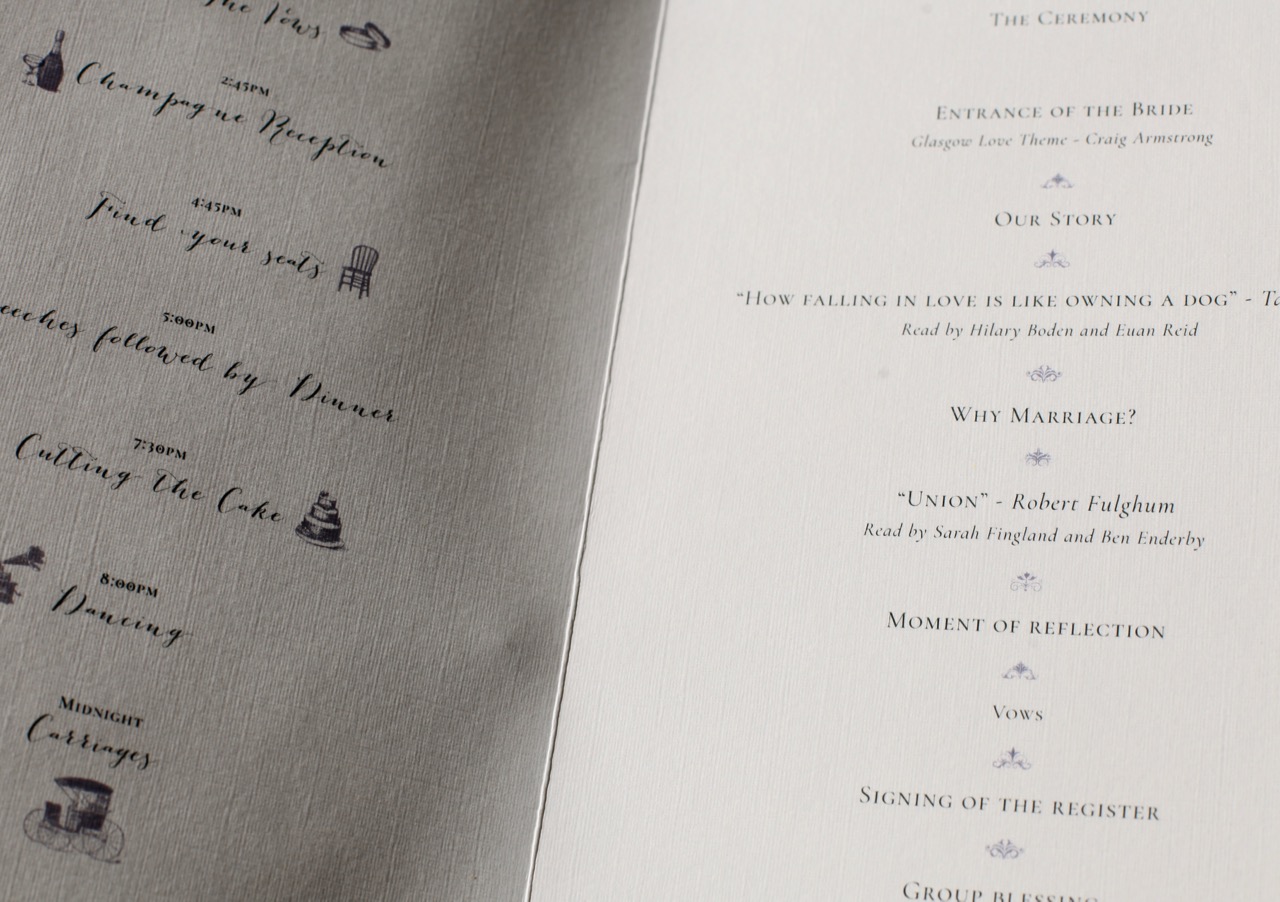 The Vows
2:45PM
Champagne Reception
4:45PM
Find your seats
5:00PM
eeches followed by Dinner
7:30PM
Cutting the Cake
8:00PM
Dancing
MIDNIGHT
Carriages
THE CEREMONY
ENTRANCE OF THE BRIDE
Glasgow Love Theme - Craig Armstrong
OUR STORY
“HOW FALLING IN LOVE IS LIKE OWNING A DOG” -
Read by Hilary Boden and Euan Reid
WHY MARRIAGE?
“UNION” - Robert Fulghum
Read by Sarah Fingland and Ben Enderby
MOMENT OF REFLECTION
VOWS
SIGNING OF THE REGISTER
GROUP BLESSING